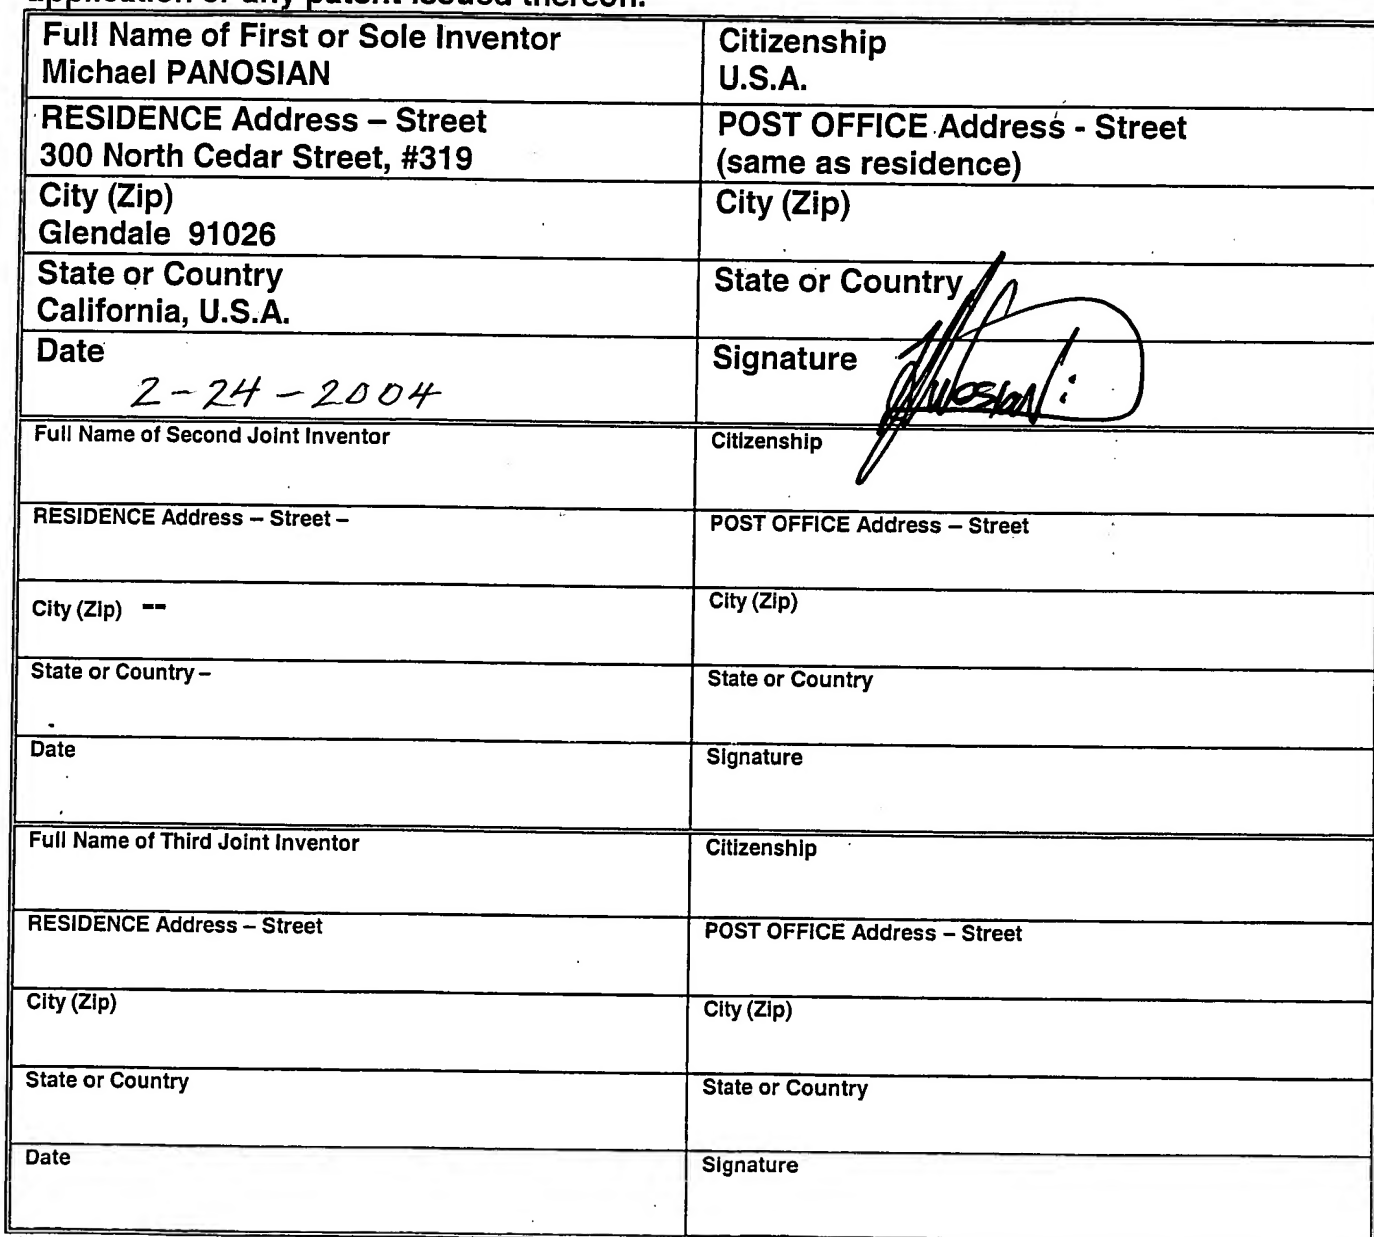 application or any patent issued thereon.
Full Name of First or Sole Inventor
Michael PANOSIAN
Citizenship
U.S.A.
RESIDENCE Address – Street
300 North Cedar Street, #319
POST OFFICE Address - Street
(same as residence)
City (Zip)
Glendale 91026
City (Zip)
State or Country
California, U.S.A.
State or Country
Date
2-24-2004
Signature
Full Name of Second Joint Inventor
Citizenship
RESIDENCE Address – Street –
POST OFFICE Address – Street
City (Zip) --
City (Zip)
State or Country –
State or Country
Date
Signature
Full Name of Third Joint Inventor
Citizenship
RESIDENCE Address – Street
POST OFFICE Address – Street
City (Zip)
City (Zip)
State or Country
State or Country
Date
Signature